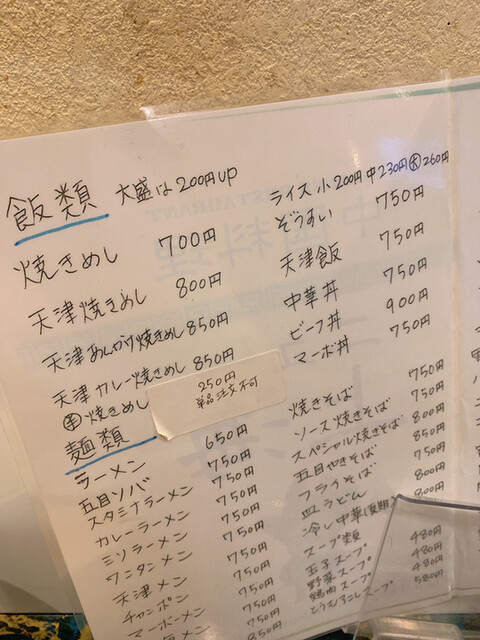 飯類 大盛は200円UP
焼きめし 700円
天津焼きめし 800円
天津あんかけ焼きめし 850円
天津カレー焼きめし 850円
焼きめし 250円 単品注文不可
ライス 小200円 中230円 大260円
ぞうすい 750円
天津飯 750円
中華丼 750円
ビーフ丼 900円
マーボ丼 750円
麺類
ラーメン 650円
五目ソバ 750円
スタミナラーメン 750円
カレーラーメン 750円
ミソラーメン 750円
ワンタンメン 750円
天津メン 750円
チャンポン 750円
マーボーメン 750円
メン 850円
焼きそば 750円
ソース焼きそば 750円
スペシャル焼きそば 800円
五目やきそば 850円
フライそば 750円
皿うどん 800円
冷し中華 800円
スープ類
玉子スープ 480円
野菜スープ 480円
鶏肉スープ 480円
とうもろこしスープ 580円